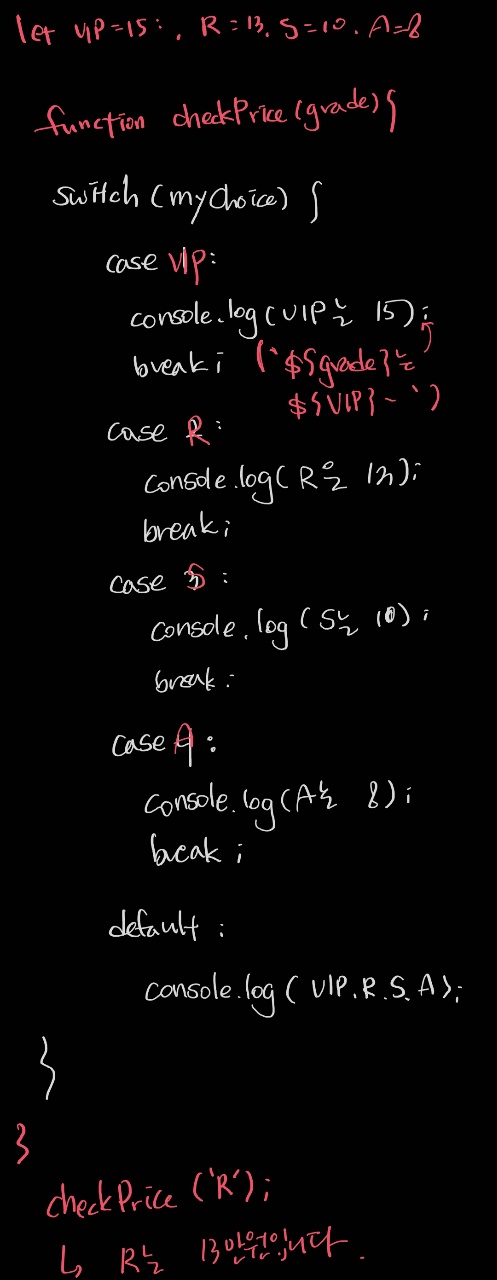 let VIP=15:, R=13. S=10. A=8
function checkPrice(grade){
switch (myChoice) {
case VIP:
console.log(VIP는 15);
break;
(`${grade}는
${VIP}~`)
case R:
console.log(R은 13);
break;
case S:
console.log(S는 10);
break;
case A:
console.log(A는 8);
break;
default:
console.log(VIP.R.S.A);
}
}
checkPrice('R');
↳ R는 13만원입니다.